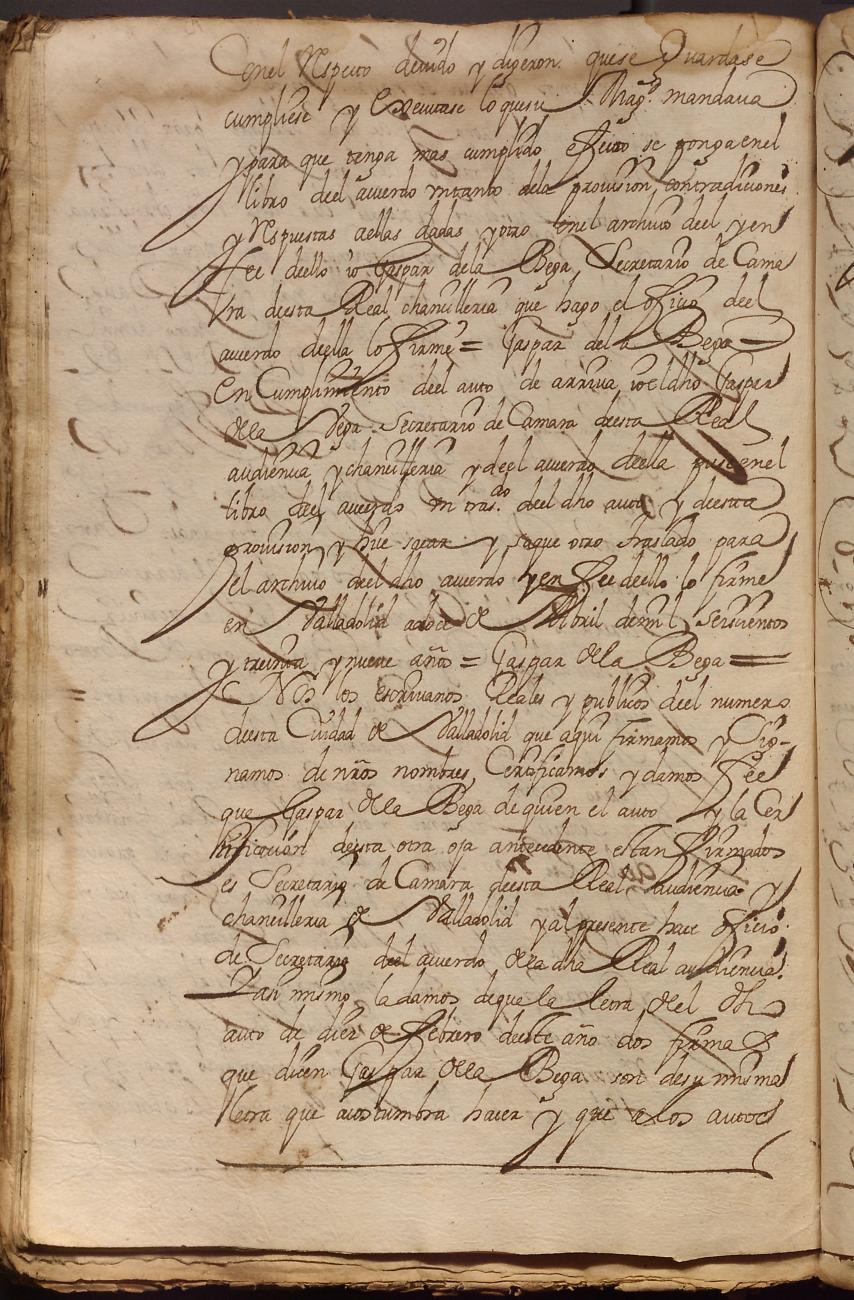 Conel Respecto devido y dixeron que se Guardase
cumpliese y Executase lo que su Magd. mandava
y para que tenga mas cumplido efecto se ponga enel
libro deel acuerdo un tanto dela provision, contradiciones
y Respuestas aellas dadas y otro Enel archivo deel y en
fee deello io Gaspar dela Bega, Secretario de Cama
ra deesta Real chancilleria que hago el oficio deel
acuerdo deella lo firme = Gaspar dela Bega =
En Cumplimiento deel auto de arriva io el dho Gaspar
dela Vega Secretario de Camara deesta Real
audiencia y chancilleria y deel acuerdo deella puse enel
libro deel acuerdo un trasdo. deel dho auto y deesta
provision y hice sacar y saque otro traslado para
el archivo deel dho acuerdo y en fee deello lo firme
en Valladolid a doce de Abril de mil seiscientos
y treinta y nueve años = Gaspar dela Bega =
Nos los escrivanos Reales y publicos deel numero
deesta Ciudad de Valladolid que aqui firmamos y Sig-
namos de nros nombres, Certificamos y damos fee
que Gaspar dela Bega de quien el auto y la Cer
tificacion deesta otra oja antecedente estan firmados
es Secretario de Camara deesta Real audiencia y
chancilleria de Valladolid y al presente hace oficio
de Secretario deel acuerdo dela dha Real audiencia
Y asi mismo la damos de que la letra del dho
auto de diez de Febrero deeste año dos firmas
que dicen Gaspar dela Bega son de su misma
letra que acostumbra hacer y que a los autos